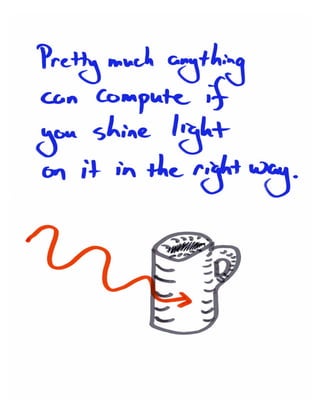 Pretty much anything
can compute if
you shine light
on it in the right way.